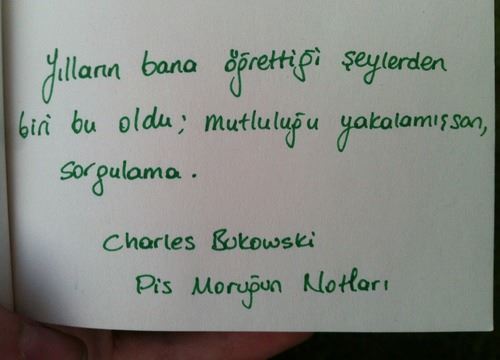 Yılların bana öğrettiği şeylerden
biri bu oldu; mutluluğu yakalamışsan,
sorgulama.
Charles Bukowski
Pis Moruğun Notları